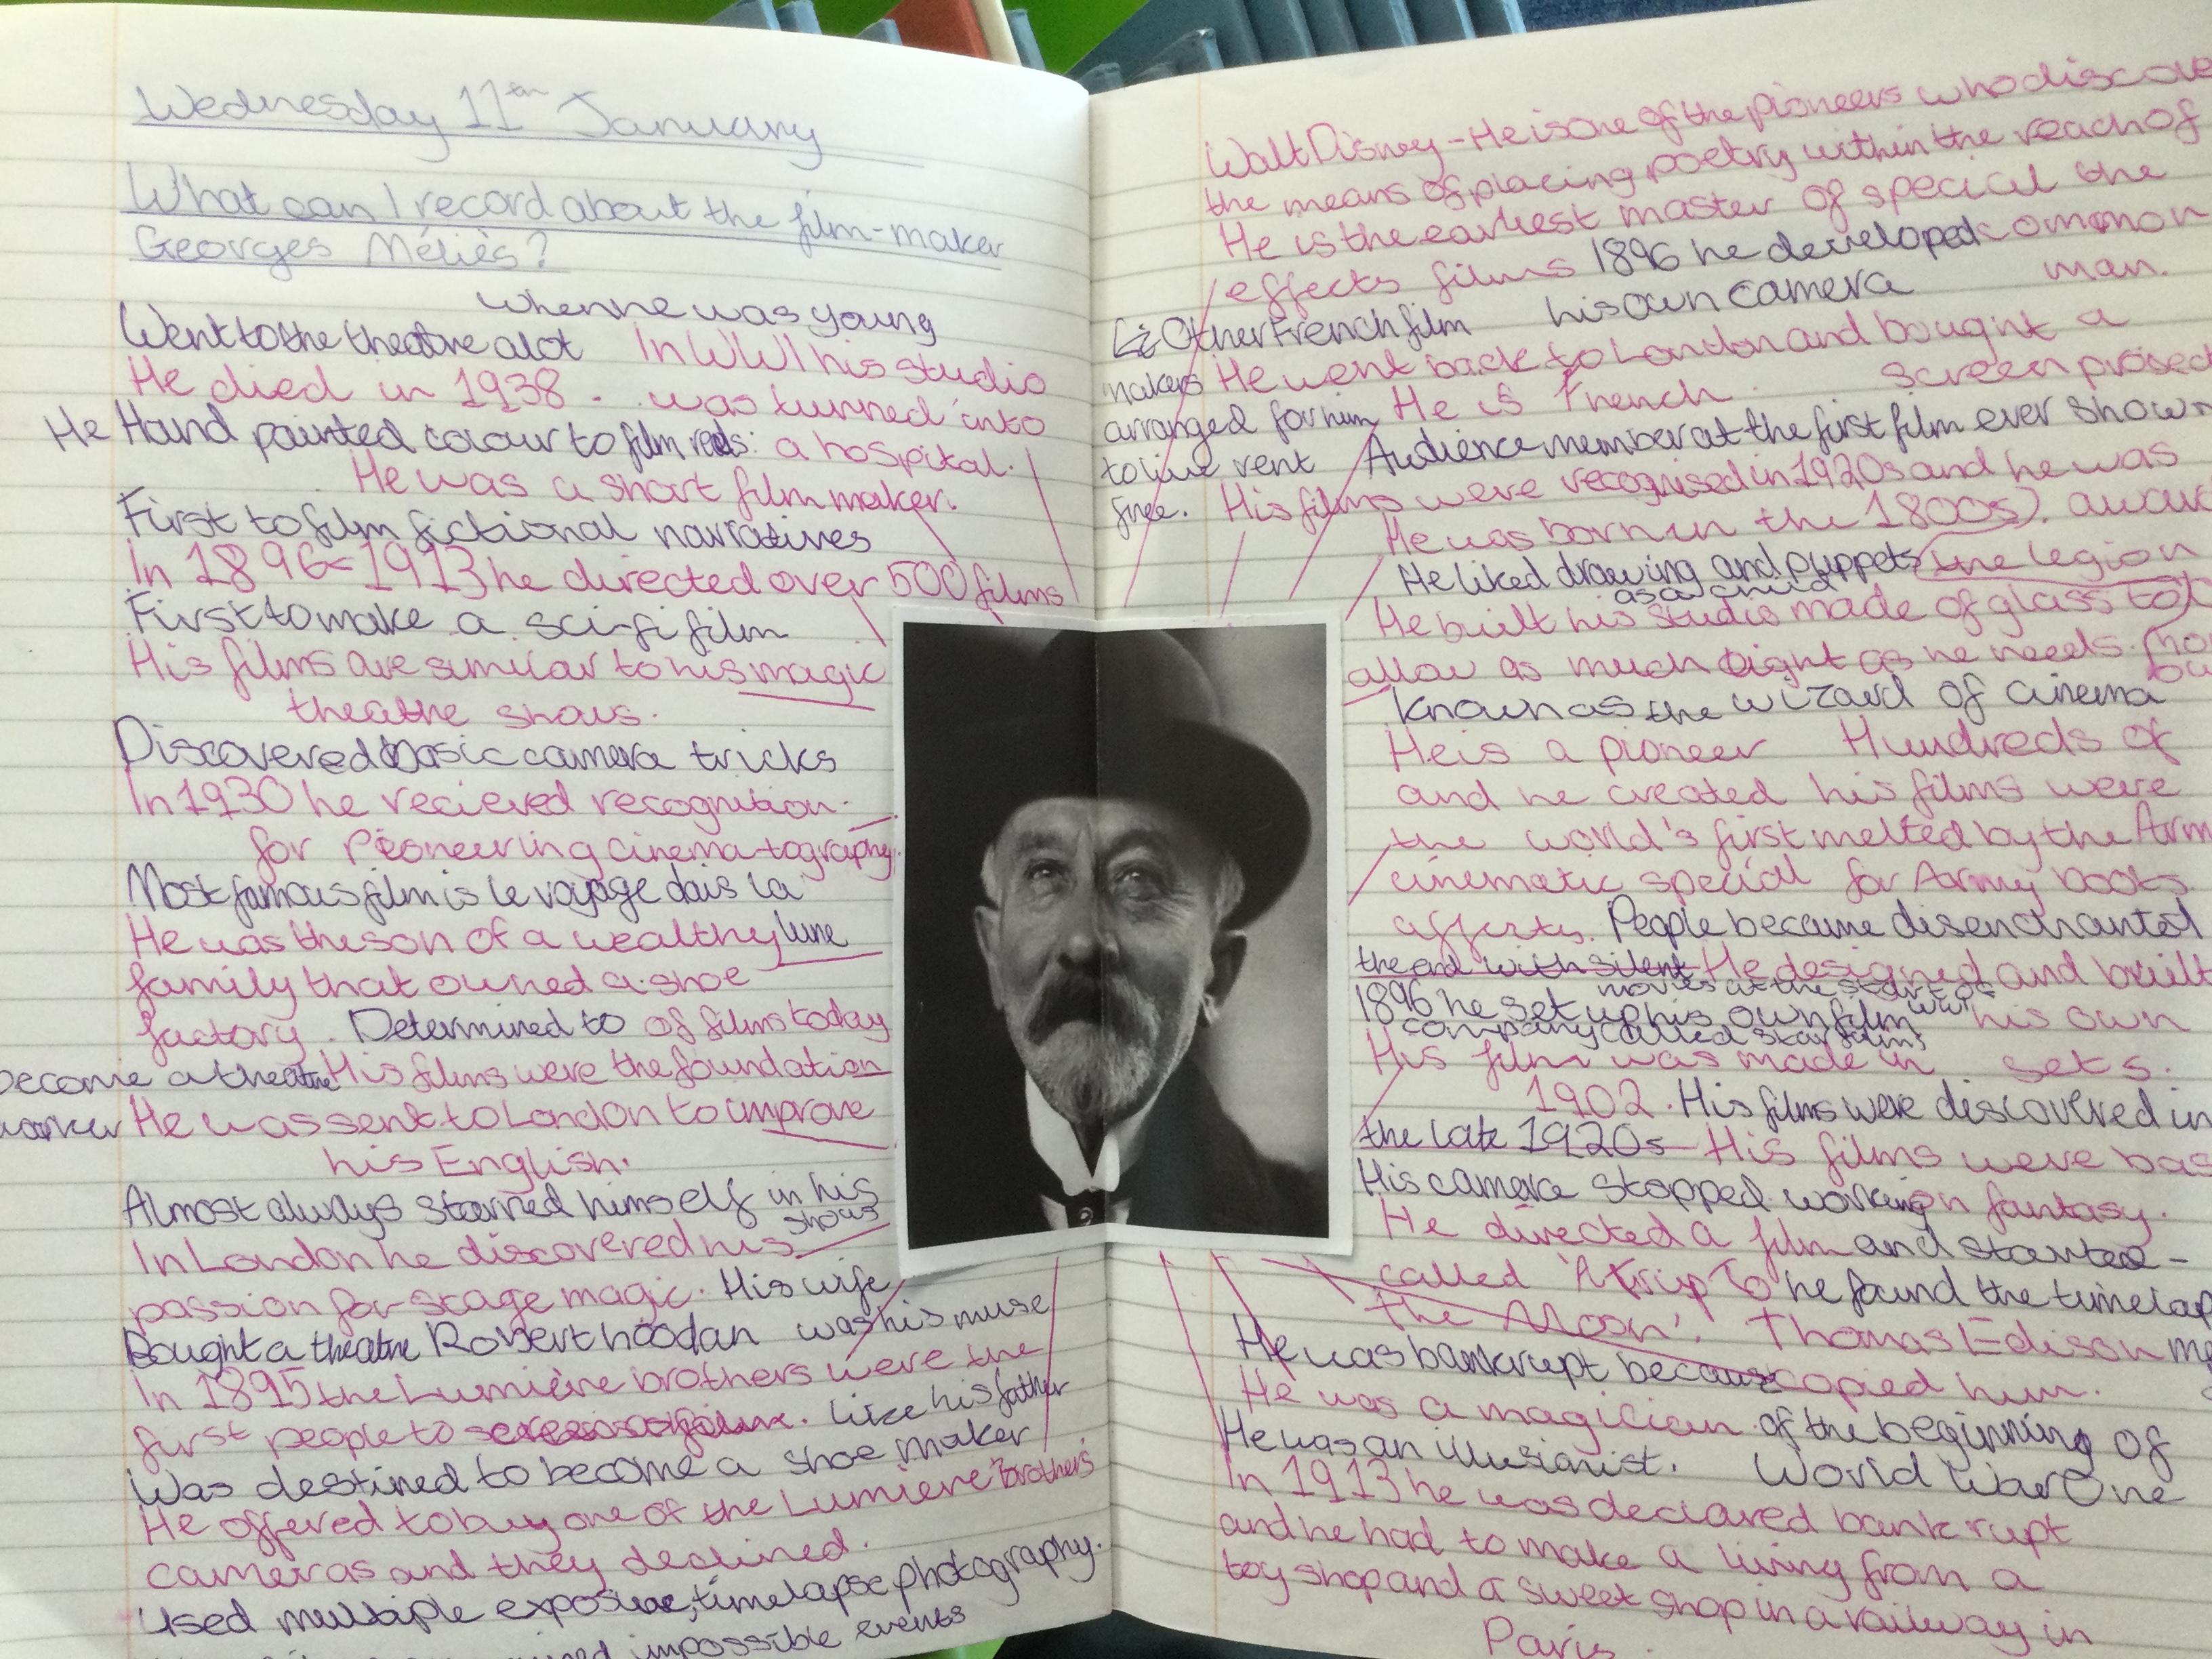 Wednesday 11th January
What can I record about the film-maker
Georges Méliès?
when he was young
Went to the theatre alot In WW1 his studio
He died in 1938. was turned into
He Hand painted colour to film reels: a hospital.
He was a short film maker.
First to film fictional narratives
In 1896-1913 he directed over 500 films
First to make a sci-fi film
His films are similar to his magic
theatre shows.
Discovered basic camera tricks
In 1930 he recieved recognition.
for Pioneering cinematography.
Most famous film is le voyage dais la
He was the son of a wealthy lune
family that owned a shoe
factory. Determined to of films today
become a theatre His films were the foundation
worker He was sent to London to improve
his English.
Almost always starred himself in his
shows
In London he discovered his
passion for stage magic. His wife
Bought a theatre Robert hoodan was his muse
In 1895 the Lumière brothers were the
first people to
like his father
Was destined to become a shoe maker
He offered to buy one of the Lumière Brothers'
cameras and they declined.
Used multiple exposure, timelapse photography.
impossible events
Walt Disney - He is one of the pioneers who discove
the means of placing poetry within the reach of
He is the earliest master of special the
effects films 1896 he developed common
his own camera man.
Other French film
makers He went back to London and bought a
arranged for him He is French. screen
to live rent Audience member at the first film ever shown
free. His films were recognised in 1920s and he was
He was born in the 1800s).
He liked drawing and puppets the legion
as a child
He built his studio made of glass to
allow as much light as he needs.
Known as the wizard of cinema
He is a pioneer Hundreds of
and he created his films were
the world's first melted by the Arm
cinematic special for Army boots
affects. People became disenchanted
the end with silent He designed and built
movies at the start of
WW1
1896 he set up his own film his own
company called star films
His film was made in sets.
1902. His films were discovered in
the late 1920s His films were bas
His camera stopped working on fantasy.
He directed a film and started -
called 'A trip To he found the timelap
the Moon'. Thomas Edison
He was bankrupt because copied him.
He was a magician of the beginning of
He was an illusionist. World War One
In 1913 he was declared bankrupt
and he had to make a living from a
toy shop and a sweet shop in a railway in
Paris.